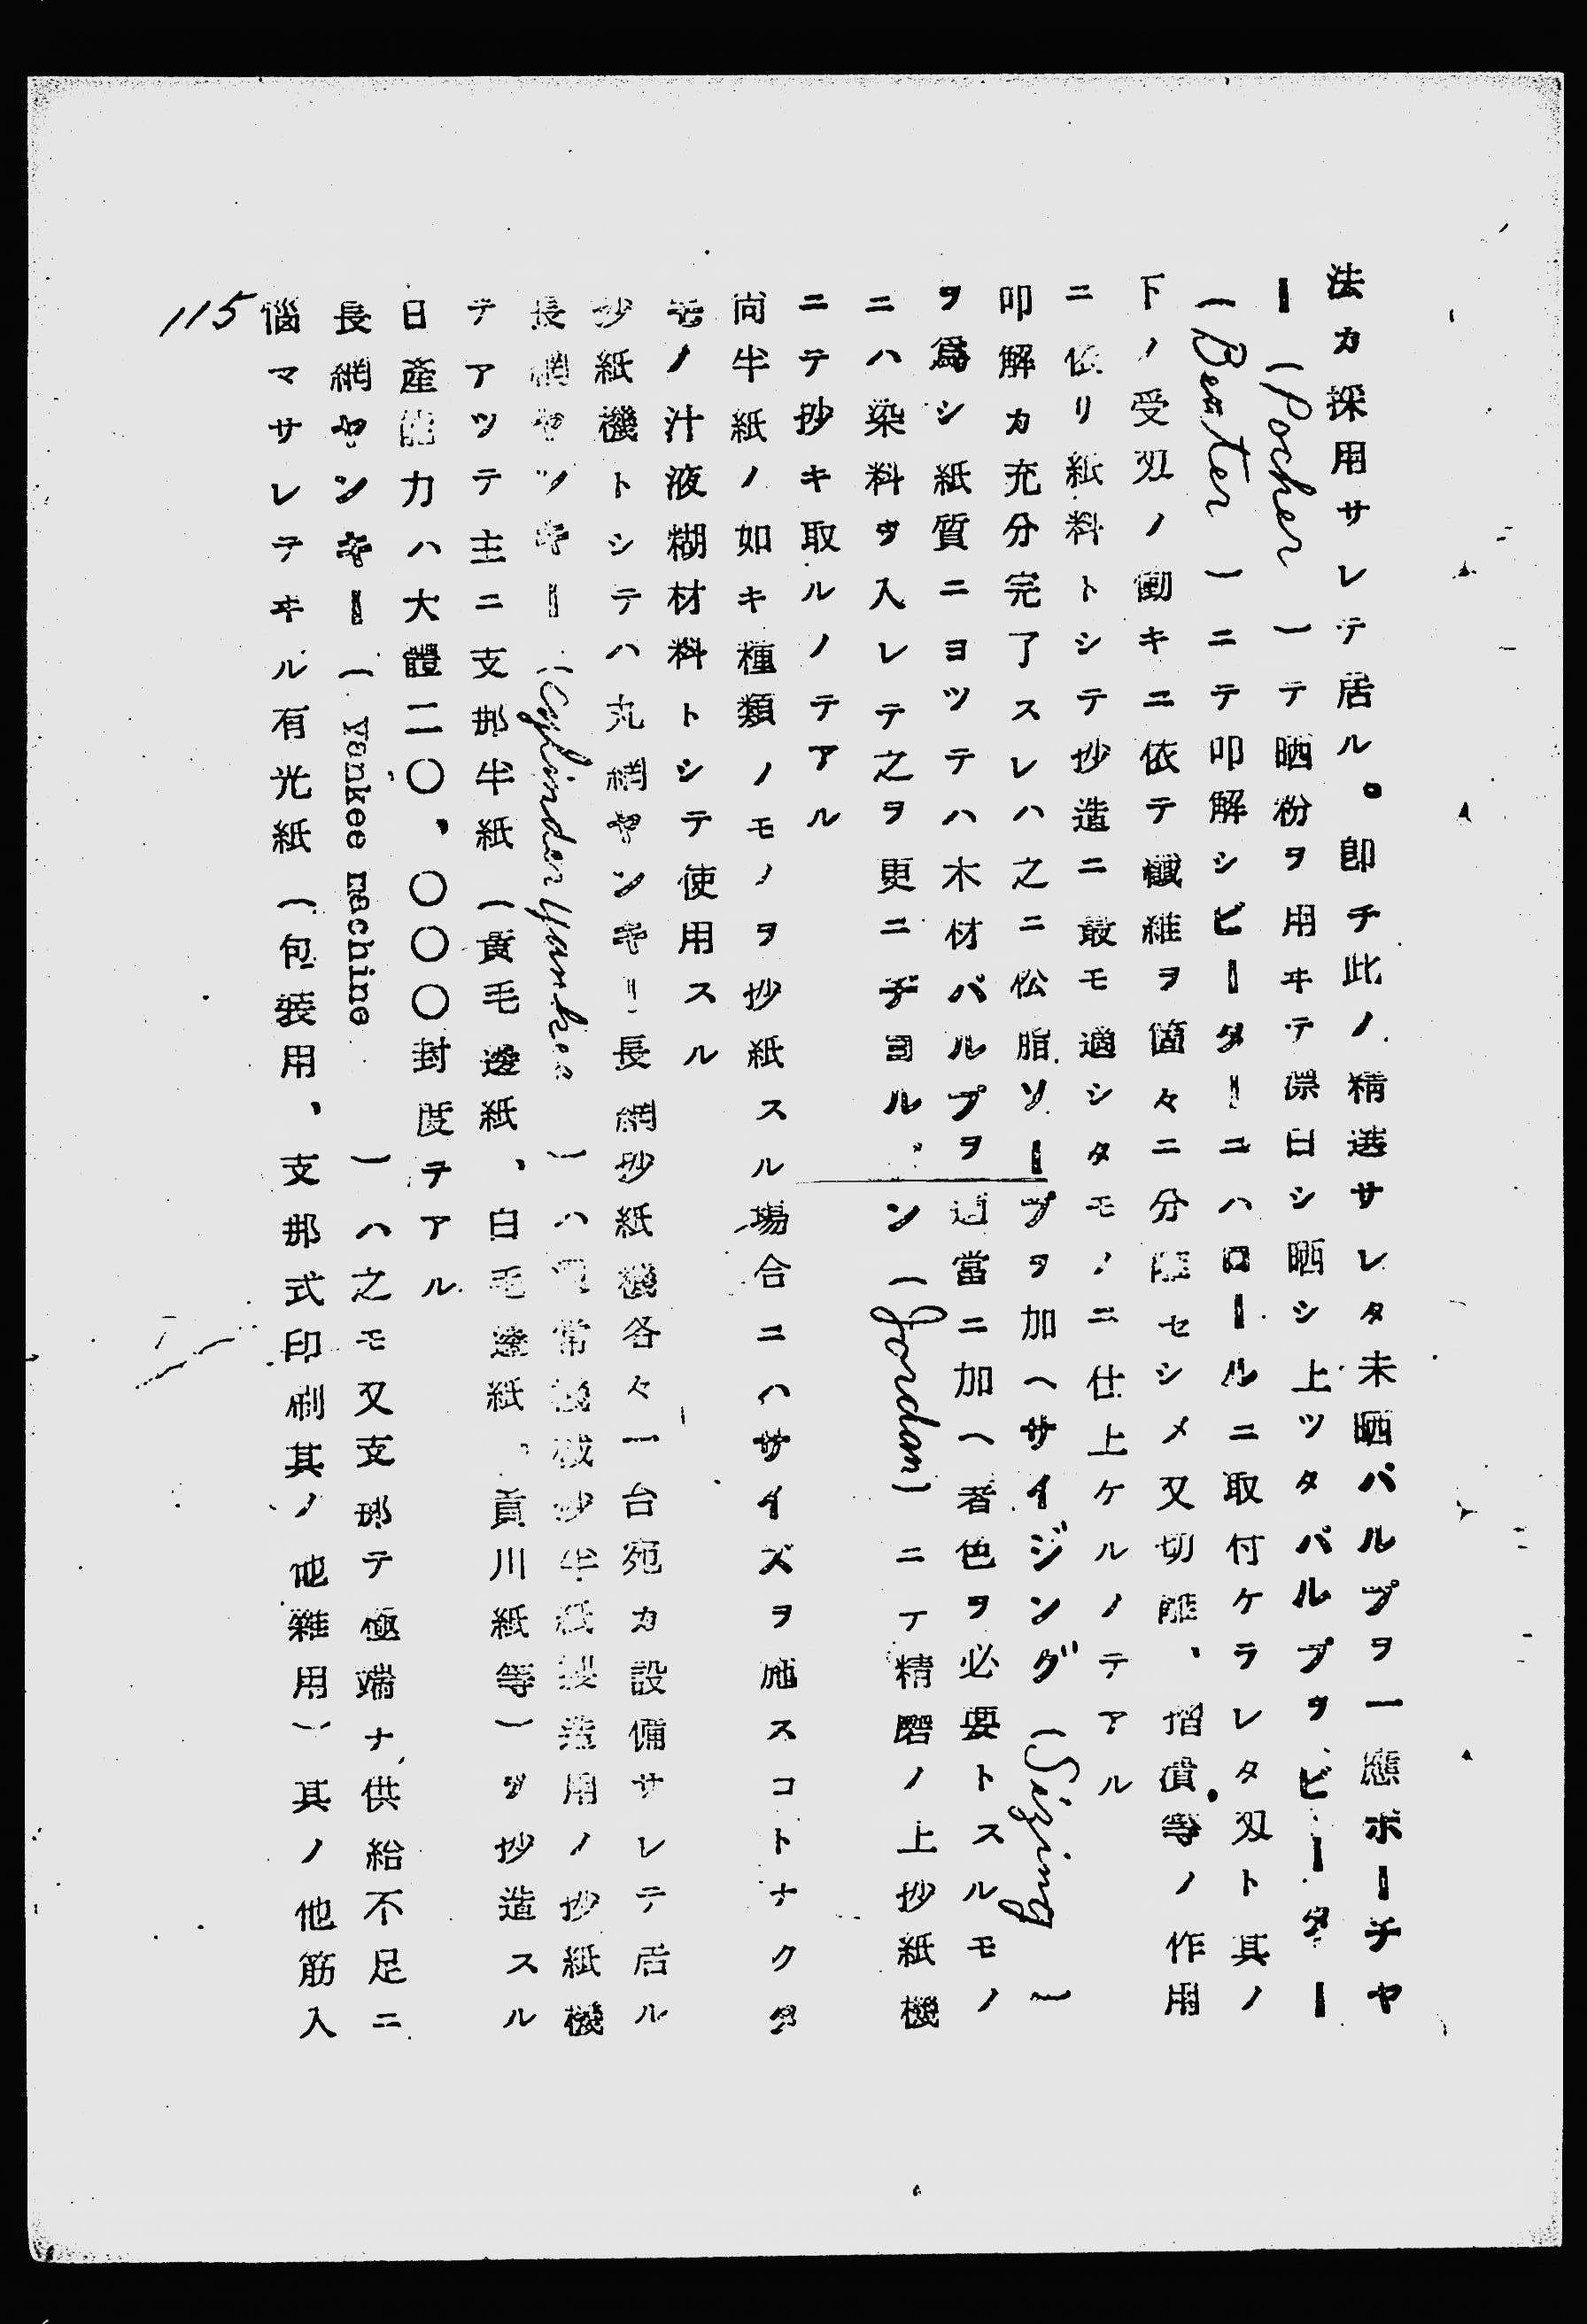 法カ採用サレテ居ル。卽チ此ノ精選サレタ未晒パルプヲ一應ボーチヤ
ー(Pocher)テ晒粉ヲ用ヰテ漂白シ晒シ上ツタパルプヲビーター
(Beater)ニテ叩解シビーターニハロールニ取付ケラレタ刄ト其ノ
下ノ受刄ノ働キニ依テ纖維ヲ箇々ニ分離セシメ又切離、摺潰等ノ作用
ニ依リ紙料トシテ抄造ニ最モ適シタモノニ仕上ケルノテアル
叩解カ充分完了スレハ之ニ松脂ソープヲ加ヘサイジング(Sizing)
ヲ爲シ紙質ニヨツテハ木材パルプヲ適當ニ加ヘ着色ヲ必要トスルモノ
ニハ染料ヲ入レテ之ヲ更ニヂヨルダン(Jordan)ニテ精磨ノ上抄紙機
ニテ抄キ取ルノテアル
尚半紙ノ如キ種類ノモノヲ抄紙スル場合ニハサイズヲ施スコトナクタ
モノ汁液糊材料トシテ使用スル
抄紙機トシテハ丸網ヤンキー長網抄紙機各々一台宛カ設備サレテ居ル
長網ヤツキー(Cylinder Yankee)ハ常機械抄半紙製造用ノ抄紙機
テアツテ主ニ支那半紙(黃毛邊紙、白毛邊紙、貢川紙等)ヲ抄造スル
日產能力ハ大體二〇、〇〇〇封度テアル
長網ヤンキー(Yankee machine)ハ之モ又支那テ極端ナ供給不足ニ
惱マサレテヰル有光紙(包裝用、支那式印刷其ノ他雜用)其ノ他筋入
115